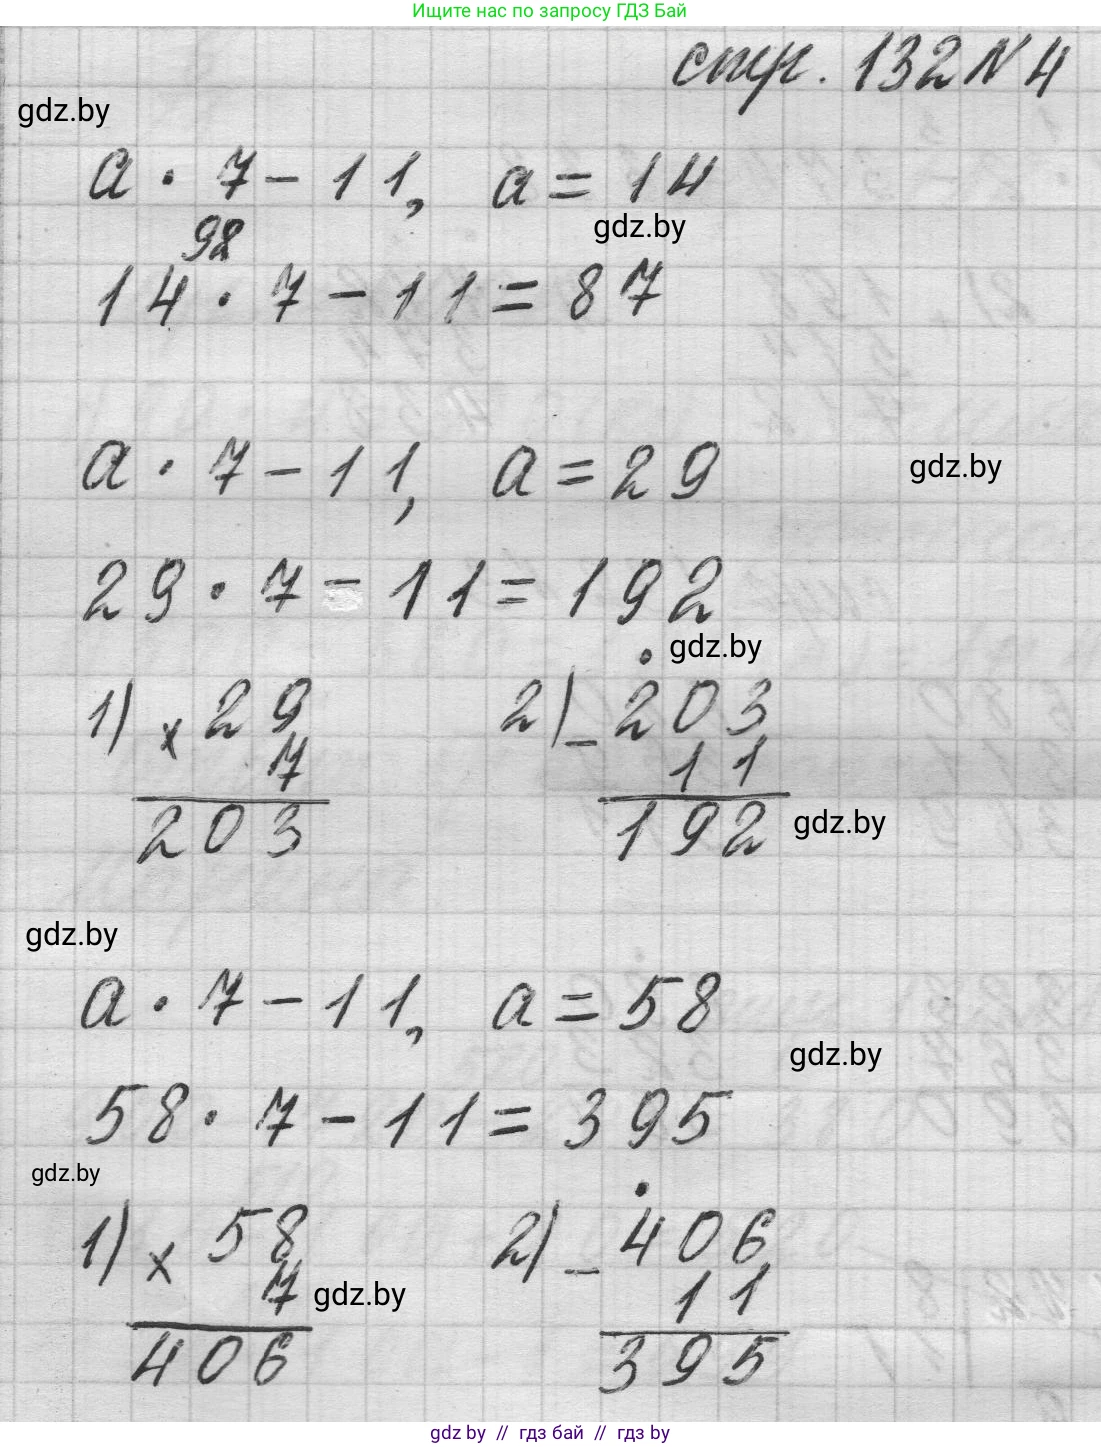 Ищите нас по запросу ГДЗ Бай
стр. 132 N 4
gdz.by
a · 7 - 11, a = 14
gdz.by
98
14 · 7 - 11 = 87
a · 7 - 11, a = 29
gdz.by
29 · 7 - 11 = 192
gdz.by
1) × 29 2) - 203
7 11
203 192
gdz.by
gdz.by
a · 7 - 11, a = 58
gdz.by
58 · 7 - 11 = 395
gdz.by
1) × 58 2) - 406
7 11
gdz.by
406 395
gdz by // гдз бай // gdz by